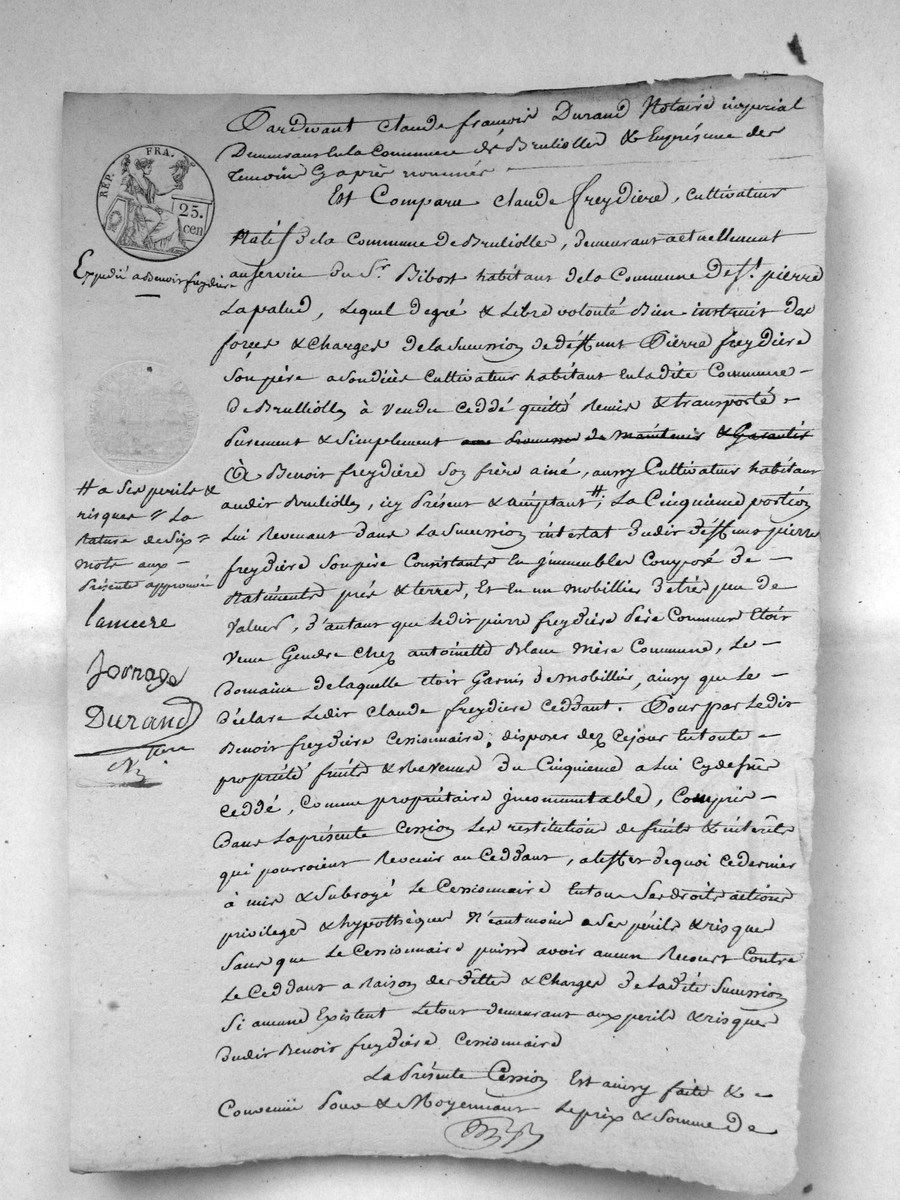 Pardevant Claude françois Durand Notaire imperial
Demeurant En la Commune de Brulliolles & En présence des
temoins Cy après nommés
RÉP. FRA.
25.
cen
Est Comparu Claude freydiere, Cultivateur
Natif de la Commune de Brulliolles, demeurant actuellement
Expédié a Benoit freydiere
au service du Sr. Ribost habitant de la Commune de St. pierre
Lapalud, Lequel de gré & Libre volonté Bien instruit des
forçes & Charges de la Sucession de déffunt Pierre freydiere
Son père a Son décès Cultivateur habitant En la dite Commune
de Brulliolles à vendu Ceddé quitté Remis & transporté
Purement & Simplement promesse de Maintenir & Garantir
à Benoit freydière Son frère ainé, aussy Cultivateur habitant
audit Brulliolles, icy Présent & acceptant #, La Cinquieme portion
# a Ses perils &
risques = La
Rature de Six
mots aux
Présente approuvée
Lui Revenant dans La Sucession intestat dudit déffunt pierre
freydiere Son père Consistante En immeubles Composé de
Batiments prés & terres, Et En un mobillier de très peu de
Lameere
Valeur, d'autant que Ledit pierre freydiere Père Commun Etoit
Venu Gendre Chez antoinette Blanc Mère Commune, Le
Jornage
Domaine de laquelle Etoit Garni de Mobillier, ainsy que Le
Durand
déclare Ledit Claude freydiere Ceddant. Pour par Ledit
Nre
Benoit freydiere Cessionnaire, disposer dez Cejour En toute
propriété fruits & Revenus du Cinquieme a Lui Cydessus
Ceddé, Comme propriétaire incommutable, Compris
Dans La présente Cession Les restitution de fruits & interêts
qui pourroient Revenir au Ceddant, a l'effet de quoi Ce dernier
à mis & Subrogé Le Cessionnaire En tous Ses droits actions
privileges & hypothèques Néantmoins a Ses périls & risques
Sans que Le Cessionnaire puisse avoir aucun Recourt Contre
Le Ceddant a Raison des dettes & Charges de La dite Sucession
Si aucune Existent Le tout demeurant aux perils & risques
dudit Benoit freydiere Cessionnaire
La Présente Cession Est ainsy faite &
Convenue Pour & Moyennant Le prix & Somme de